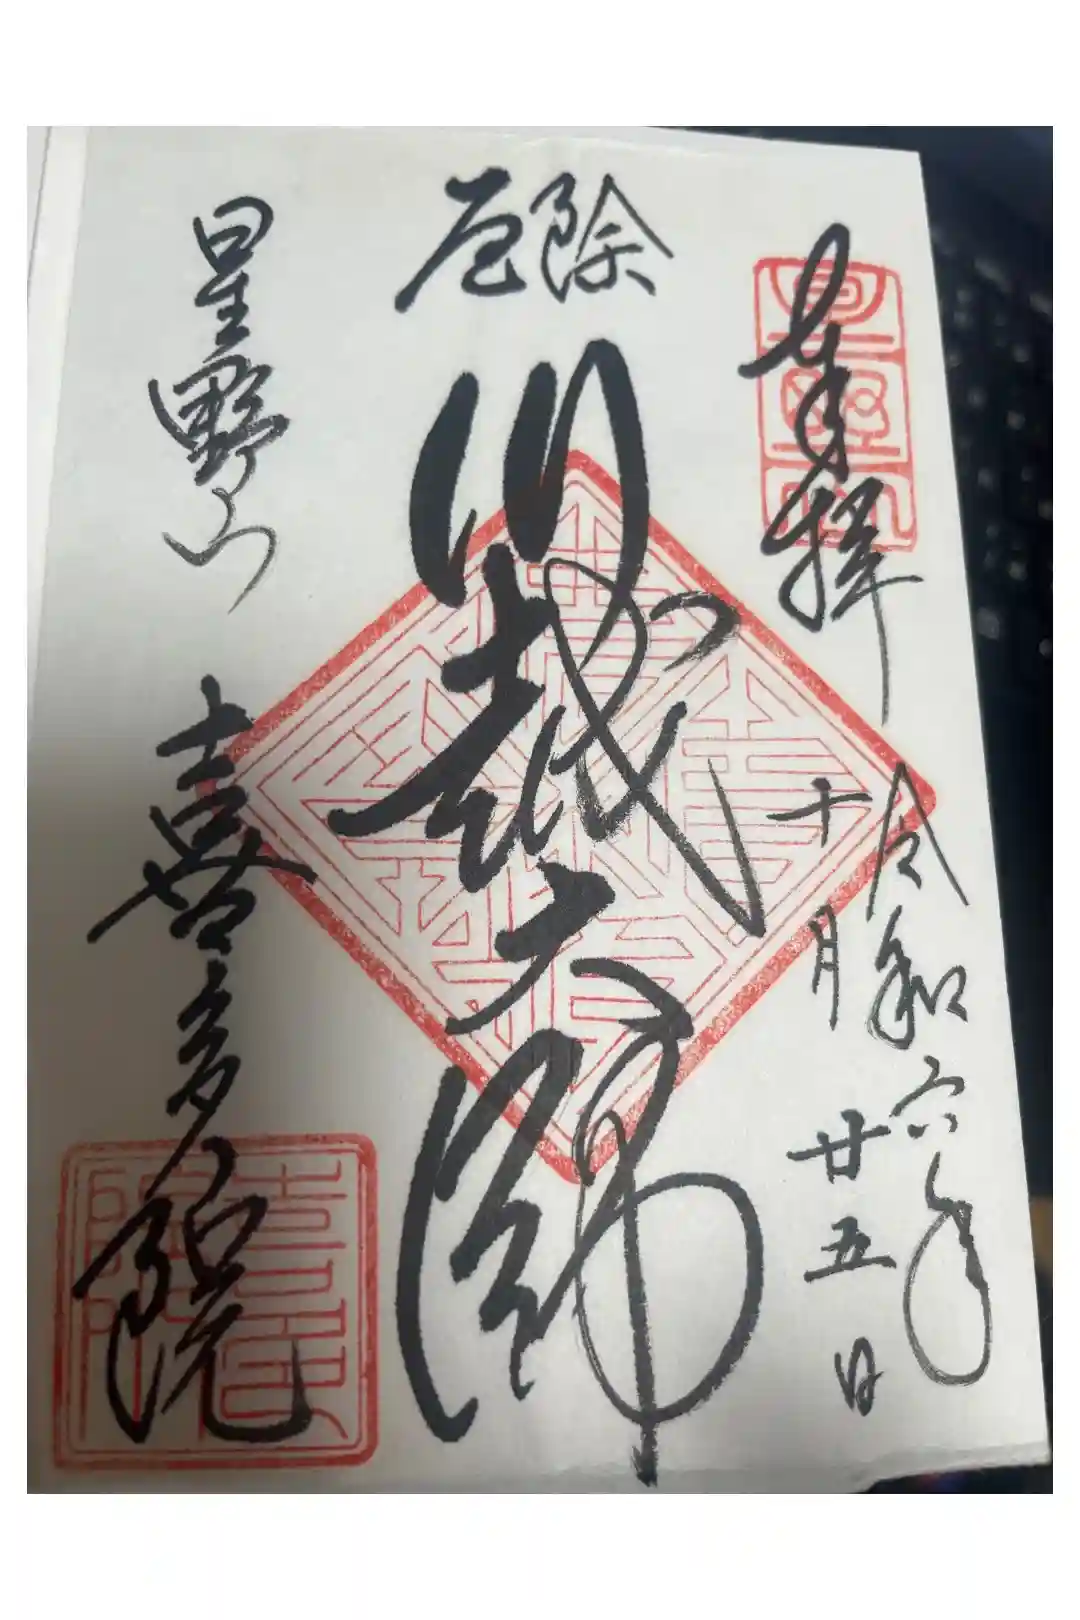 奉拝
令和六年
十月廿五日
厄除
川越大師
星野山 喜多院